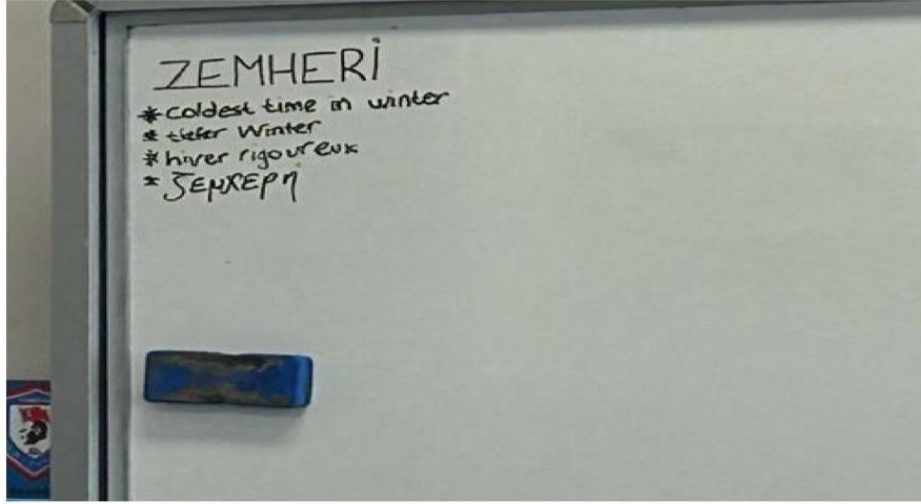 ZEMHERİ
* coldest time in winter
* tiefer Winter
* hiver rigoureux
* ζεμχερη